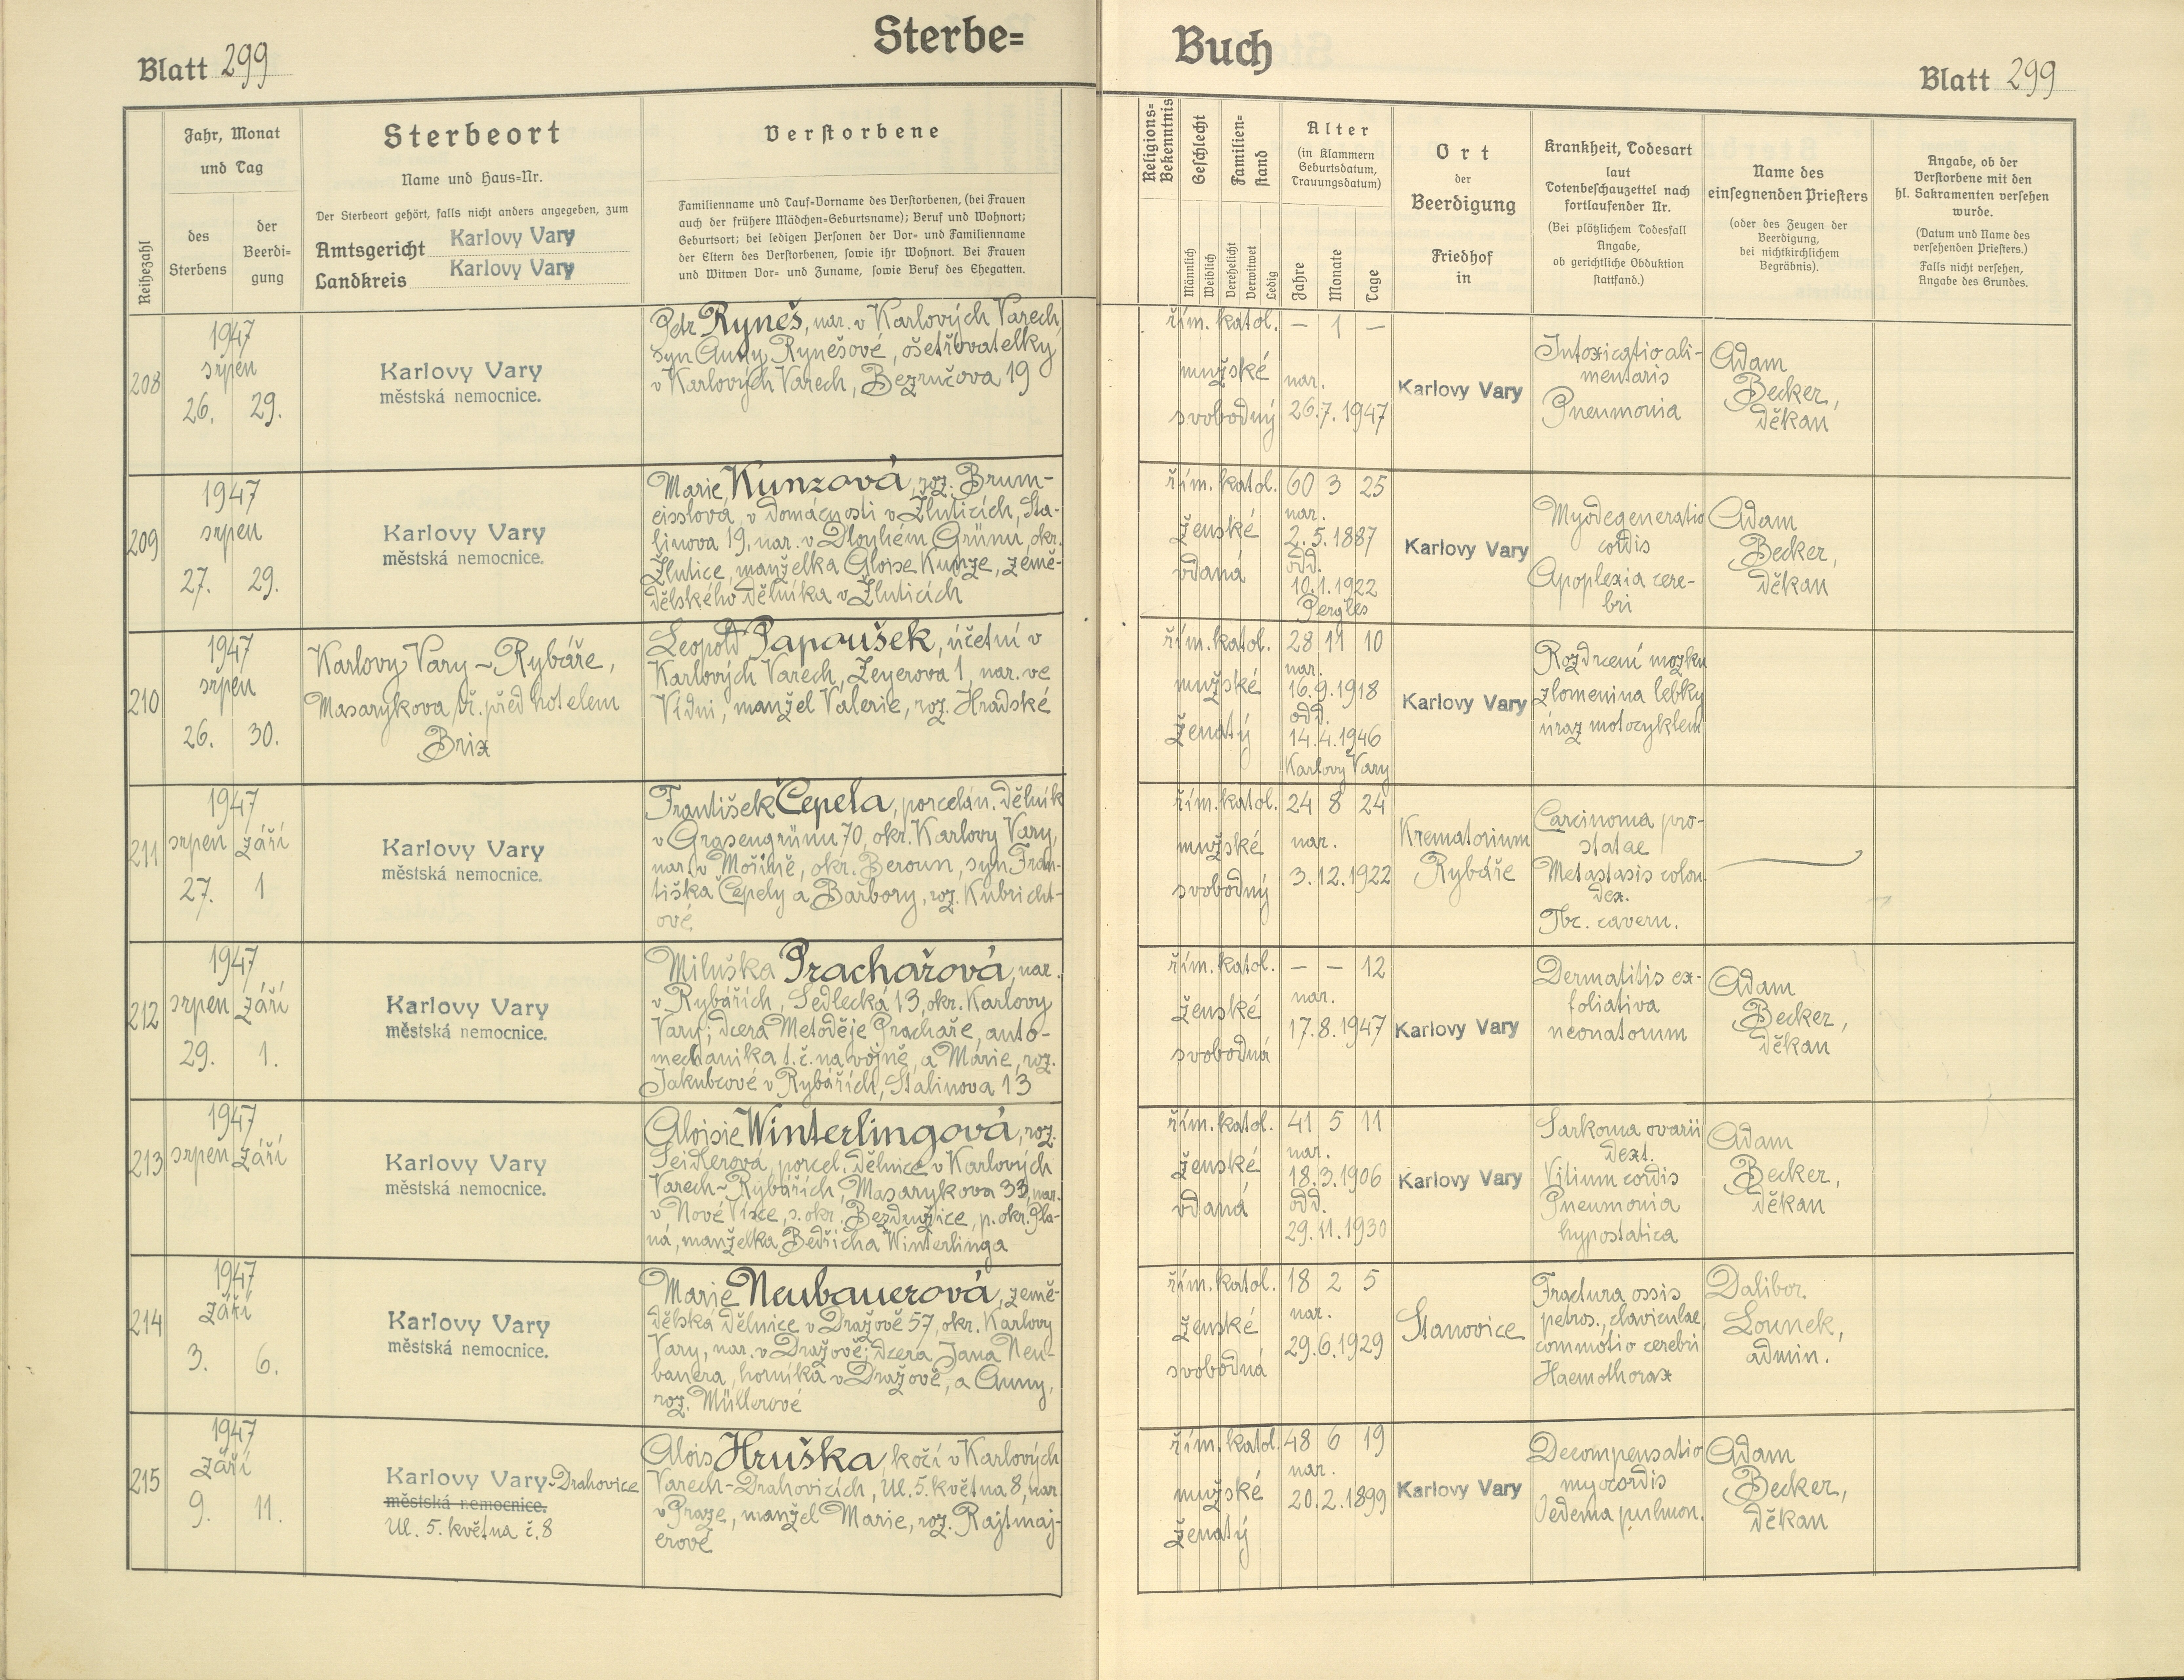 Blatt 299
Sterbe=
Buch
Blatt 299
Reihezahl
Jahr, Monat
und Tag
des
Sterbens
der
Beerdi=
gung
Sterbeort
Name und Haus=Nr.
Der Sterbeort gehört, falls nicht anders angegeben, zum
Amtsgericht Karlovy Vary
Landkreis Karlovy Vary
Verstorbene
Familienname und Tauf=Vorname des Verstorbenen, (bei Frauen
auch der frühere Mädchen=Geburtsname); Beruf und Wohnort;
Geburtsort; bei ledigen Personen der Vor= und Familienname
der Eltern des Verstorbenen, sowie ihr Wohnort. Bei Frauen
und Witwen Vor= und Zuname, sowie Beruf des Ehegatten.
Religions=
Bekenntnis
Geschlecht
Männlich
Weiblich
Familien=
stand
Verehelicht
Verwitwet
Ledig
Alter
(in Klammern
Geburtsdatum,
Trauungsdatum)
Jahre
Monate
Tage
Ort
der
Beerdigung
Friedhof
in
Krankheit, Todesart
laut
Totenbeschauzettel nach
fortlaufender Nr.
(Bei plötzlichem Todesfall
Angabe,
ob gerichtliche Obduktion
stattfand.)
Name des
einsegnenden Priesters
(oder des Zeugen der
Beerdigung,
bei nichtkirchlichem
Begräbnis).
Angabe, ob der
Verstorbene mit den
hl. Sakramenten versehen
wurde.
(Datum und Name des
versehenden Priesters.)
Falls nicht versehen,
Angabe des Grundes.
208
1947
srpen
26. 29.
Karlovy Vary
městská nemocnice.
Petr Ryneš, nar. v Karlových Varech,
syn Anny Rynešové, ošetřovatelky
v Karlových Varech, Bezručova 19
řím. katol.
mužské
svobodný
– 1 –
nar.
26.7.1947
Karlovy Vary
Intoxicatio ali-
mentaris
Pneumonia
Adam
Becker,
děkan
209
1947
srpen
27. 29.
Karlovy Vary
městská nemocnice.
Marie Kunzová, roz. Brum-
eisslová, v domácnosti v Žluticích, Sta-
linova 19, nar. v Dlouhém Grünu, okr.
Žlutice, manželka Aloise Kunze, země-
dělského dělníka v Žluticích
řím. katol.
ženské
vdaná
60 3 25
nar.
2.5.1887
odd.
10.1.1922
Pergles
Karlovy Vary
Myodegeneratio
cordis
Apoplexia cere-
bri
Adam
Becker,
děkan
210
1947
srpen
26. 30.
Karlovy Vary - Rybáře,
Masarykova tř. před hotelem
Brix
Leopold Papoušek, účetní v
Karlových Varech, Zeyerova 1, nar. ve
Vídni, manžel Valerie, roz. Hradské
řím. katol.
mužské
ženatý
28 11 10
nar.
16.9.1918
odd.
14.4.1946
Karlovy Vary
Karlovy Vary
Rozdrcení mozku
zlomenina lebky
úraz motocyklem
211
1947
srpen září
27. 1
Karlovy Vary
městská nemocnice.
František Čepela, porcelán. dělník
v Grasengrünu 70, okr. Karlovy Vary,
nar. v Mořině, okr. Beroun, syn Fran-
tiška Čepely a Barbory, roz. Kubricht-
ové
řím. katol.
mužské
svobodný
24 8 24
nar.
3.12.1922
Krematorium
Rybáře
Carcinoma pro-
statae
Metastasis colon.
dex.
Tbc. cavern.
212
1947
srpen září
29. 1.
Karlovy Vary
městská nemocnice.
Miluška Prachařová, nar.
v Rybářích, Sedlecká 13, okr. Karlovy
Vary; dcera Metoděje Prachaře, auto-
mechanika t.č. na vojně, a Marie, roz.
Jakubcové v Rybářích, Stalinova 13
řím. katol.
ženské
svobodná
– – 12
nar.
17.8.1947
Karlovy Vary
Dermatitis ex-
foliativa
neonatorum
Adam
Becker,
děkan
213
1947
srpen září
Karlovy Vary
městská nemocnice.
Aloisie Winterlingová, roz.
Seidlerová, porcel. dělnice v Karlových
Varech-Rybářích, Masarykova 33, nar.
v Nové Vísce, s. okr. Bezdružice, p. okr. Pla-
ná, manželka Bedřicha Winterlinga
řím. katol.
ženské
vdaná
41 5 11
nar.
18.3.1906
odd.
29.11.1930
Karlovy Vary
Sarkoma ovarii
dext.
Vitium cordis
Pneumonia
hypostatica
Adam
Becker,
děkan
214
1947
září
3. 6.
Karlovy Vary
městská nemocnice.
Marie Neubauerová, země-
dělská dělnice v Dražově 57, okr. Karlovy
Vary, nar. v Dražově; dcera Jana Neu-
bauera, horníka v Dražově, a Anny,
roz. Müllerové
řím. katol.
ženské
svobodná
18 2 5
nar.
29.6.1929
Stanovice
Fractura ossis
petros., claviculae,
commotio cerebri
Haemothorax
Dalibor
Lounek,
admin.
215
1947
září
9. 11.
Karlovy Vary-Drahovice
městská nemocnice.
Ul. 5. května č. 8
Alois Hruška, kočí v Karlových
Varech-Drahovicích, Ul. 5. května 8, nar.
v Praze, manžel Marie, roz. Rajtmaj-
erové
řím. katol.
mužské
ženatý
48 6 19
nar.
20.2.1899
Karlovy Vary
Decompensatio
myocordis
Oedema pulmon.
Adam
Becker,
děkan